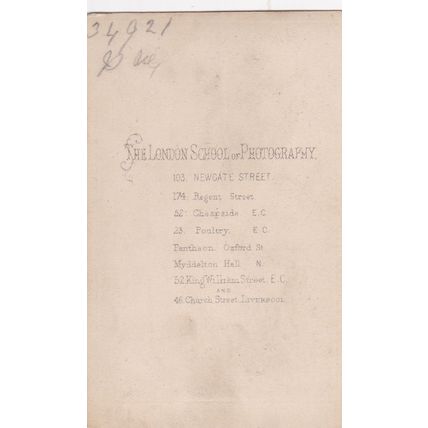 34921
THE LONDON SCHOOL OF PHOTOGRAPHY.
103. NEWGATE STREET.
174. Regent Street.
52. Cheapside E.C.
23. Poultry. E.C.
Pantheon Oxford St
Myddelton Hall N.
52 King William Street. E.C.
AND
46. Church Street. LIVERPOOL